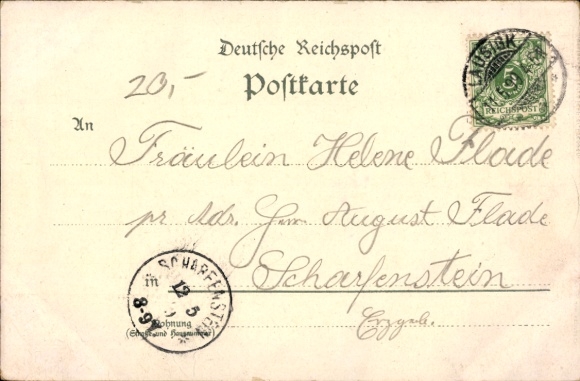 Deutsche Reichspost
Postkarte
20,-
LAUSIGK
5
REICHSPOST
An
Fräulein Helene Flade
pr Adr. Herrn August Flade
in
Scharfenstein
Erzgeb.
SCHARFENSTEIN
12 5
8-9V
Wohnung
(Straße und Hausnummer)